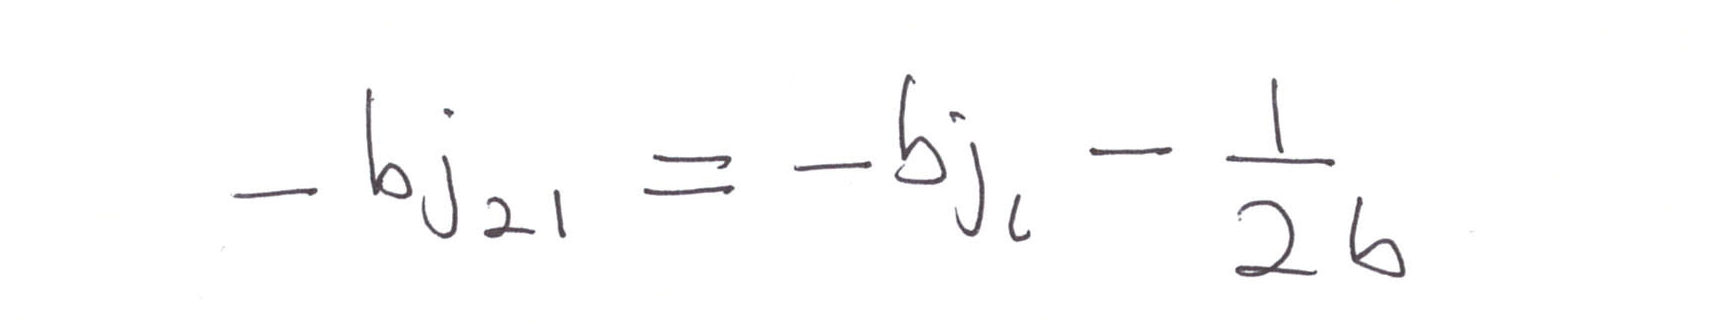 -bj_{21} = -bj_{i} - \frac{1}{2b}